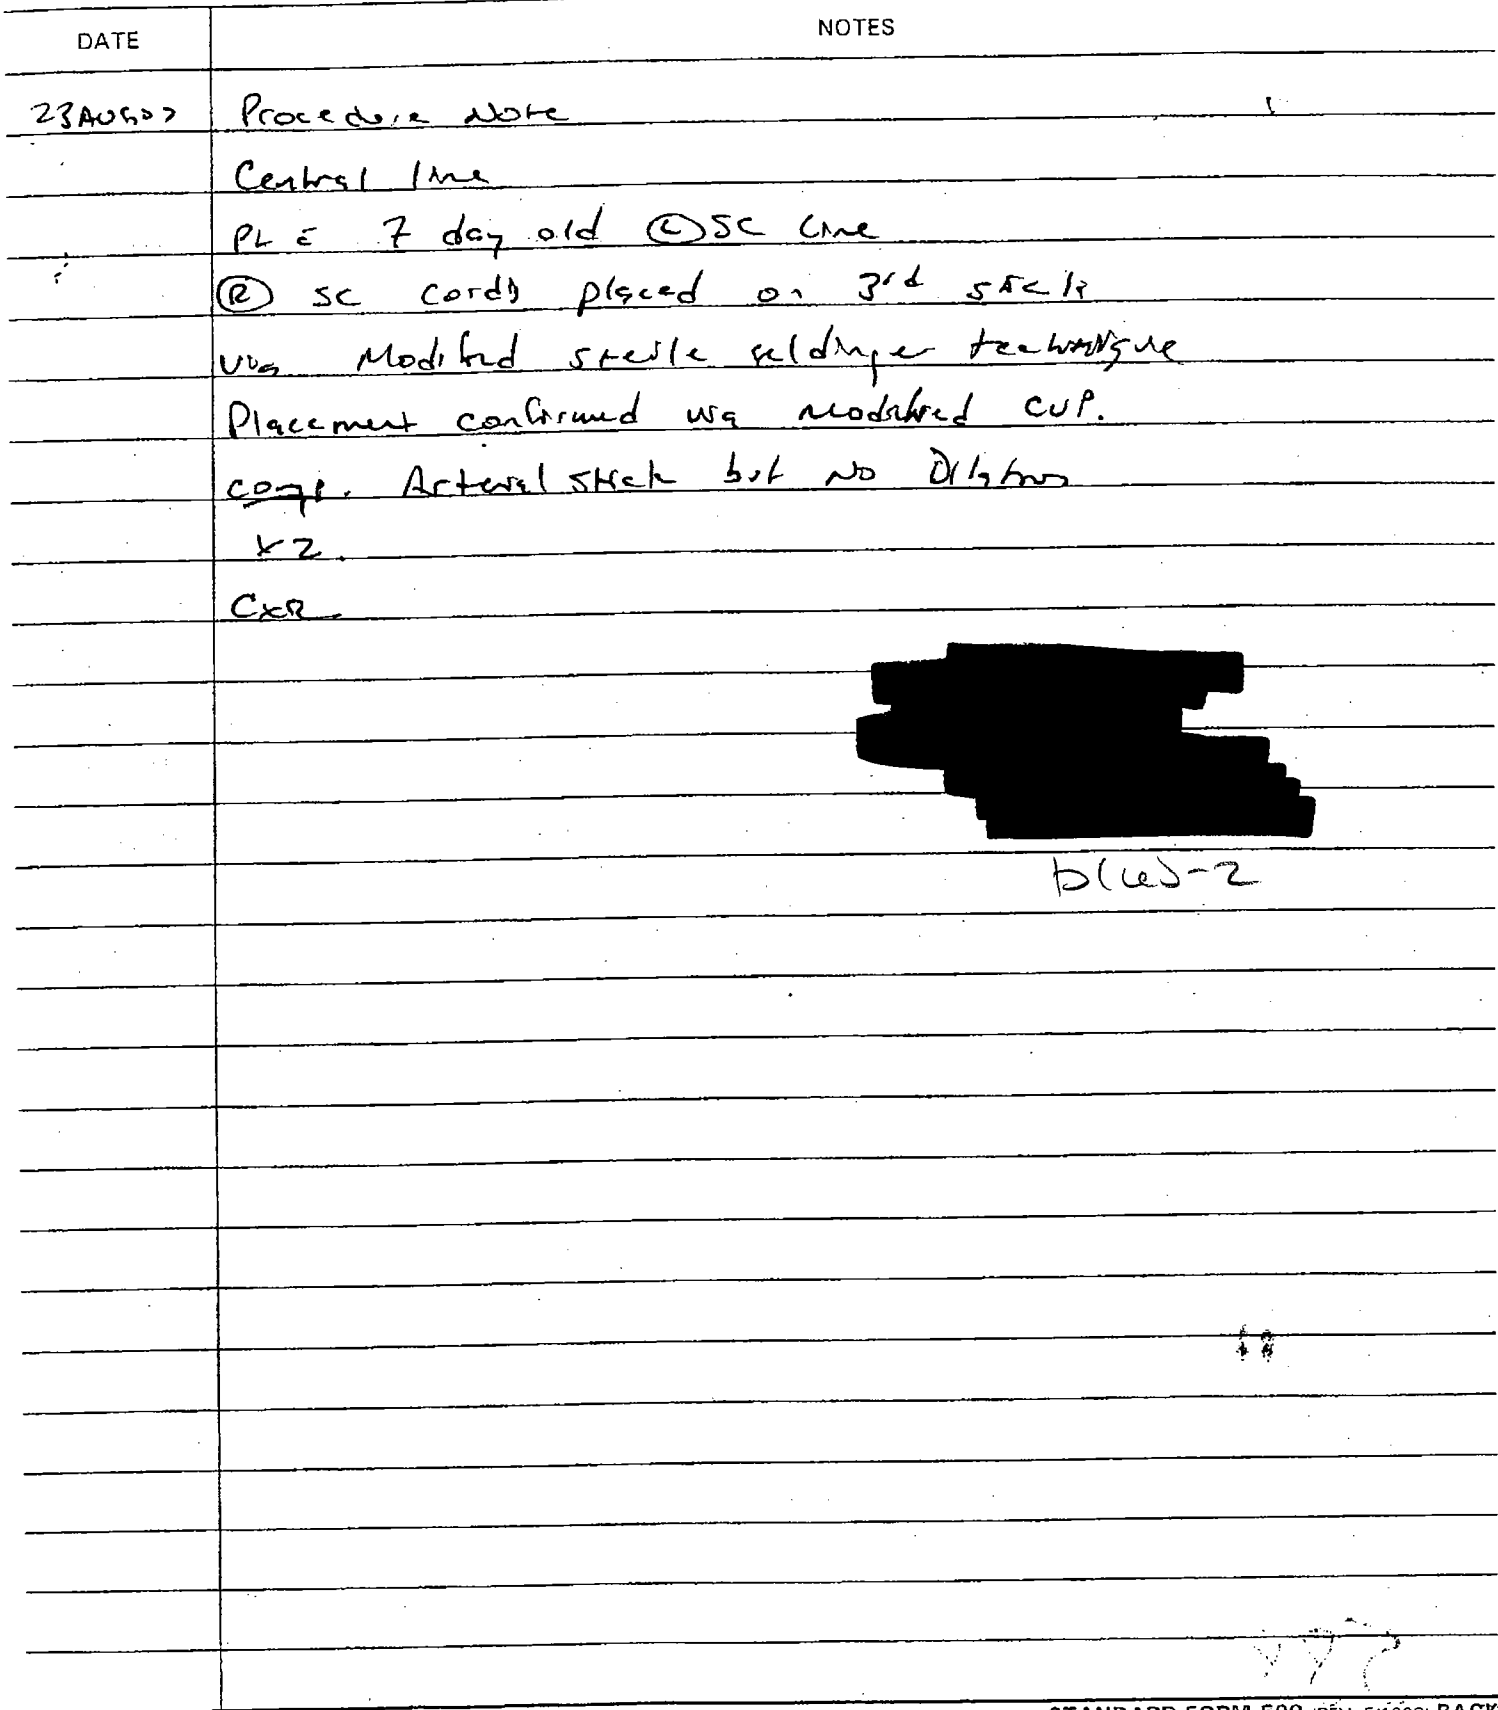 DATE NOTES
23AUG07 Procedure Note
Central line
Pt c̄ 7 day old Ⓛ SC line
Ⓡ SC Cordis placed on 3rd stick
via Modified sterile seldinger technique
Placement confirmed via CVP.
comp. Arterial stick but no Dilation
x2.
CXR
b(6)-2
STANDARD FORM BACK